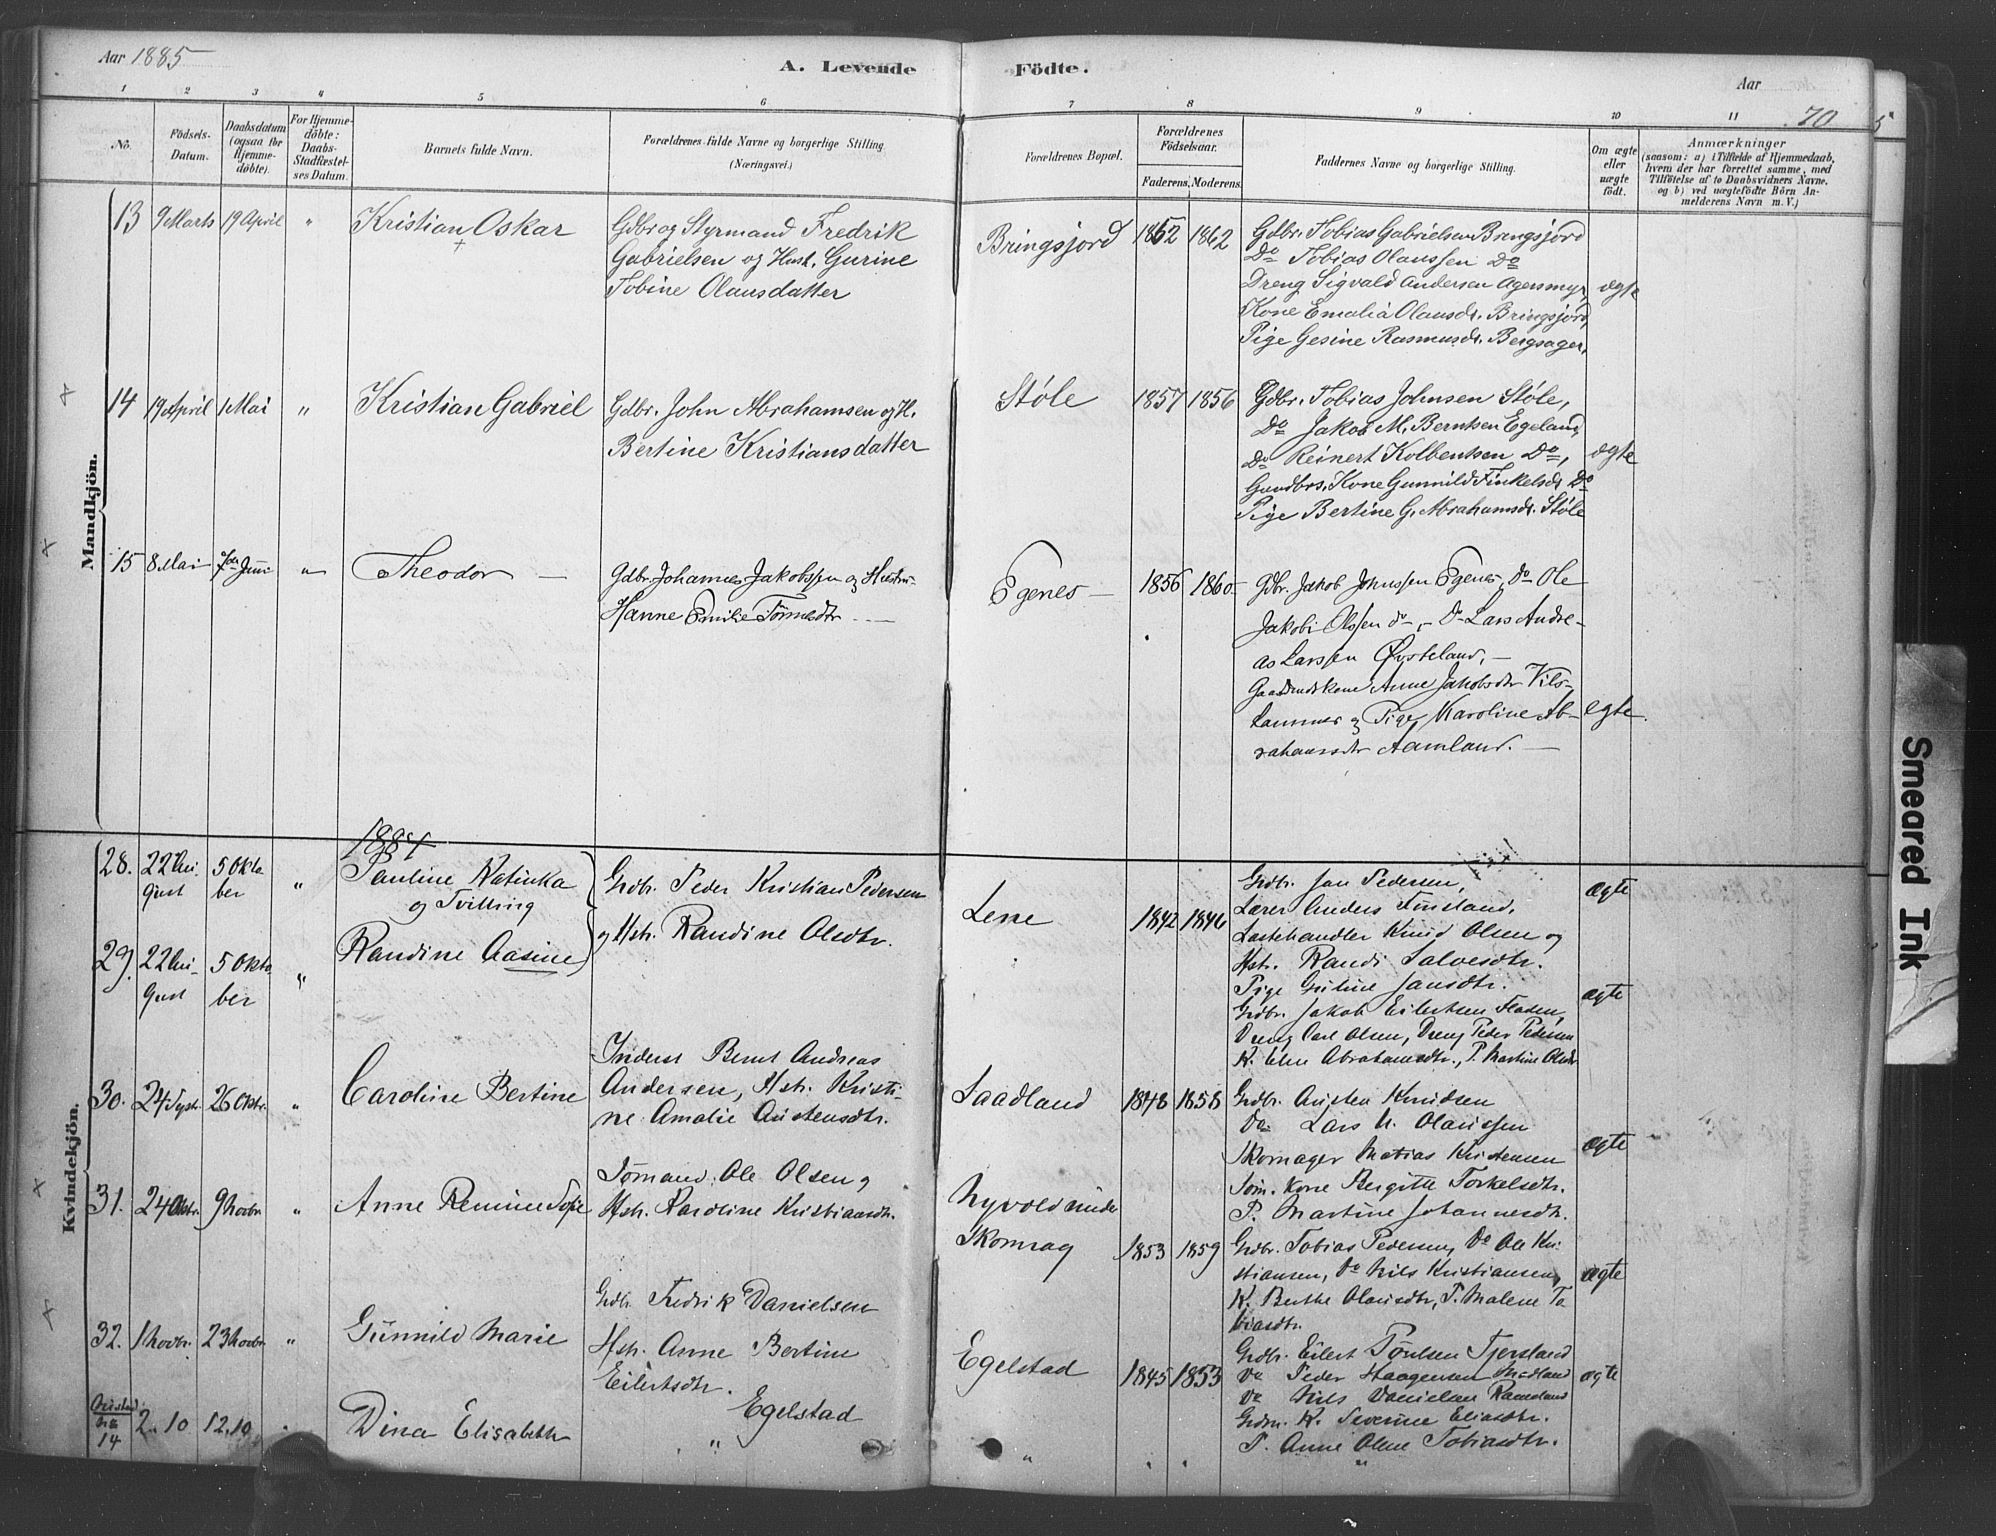 Aar 1885
A. Levende
Födte.
Aar
70
5
1 2 3 4 5 6 7 8 9 10 11
No.
Födsels-
Datum.
Daabsdatum
(ogsaa for
Hjemme-
döbte).
For Hjemme-
döbte:
Daabs-
Stadfæstel-
ses Datum.
Barnets fulde Navn.
Forældrenes fulde Navne og borgerlige Stilling
(Næringsvei.)
Forældrenes Bopæl.
Forældrenes
Födselsaar.
Faderens. Moderens.
Faddernes Navne og borgerlige Stilling.
Om ægte
eller
uægte
födt.
Anmærkninger
(saasom: a) i Tilfælde af Hjemmedaab,
hvem der har forrettet samme, med
Tilföielse af to Daabsvidners Navne.
og b) ved uægtefödte Börn An-
melderens Navn m. V.)
Mandkjön.
13 9 Marts 19 April " Kristian Oskar
Gdbr og Styrmand Fredrik
Gabrielsen og Hust. Gurine
Tobine Olausdatter
Bringsjord 1852 1862
Gdbr. Tobias Gabrielsen Bringsjord
Do Tobias Olaussen Do
Dreng Sigvald Andersen Agersmyr,
Kone Emalia Olausdr. Bringsjord,
Pige Gesine Rasmusdr. Bergsager.
ægte
14 19 April 1 Mai " Kristian Gabriel
Gdbr. John Abrahamsen og H.
Bertine Kristiansdatter
Støle 1857 1856
Gdbr. Tobias Johnsen Støle,
Do Jakob M. Berntsen Egeland,
Do Reinert Kolbensen Do,
Gaardbrs. Kone Gunnild Finkelsdr. Do
Pige Bertine G. Abrahamsdr. Støle
ægte
15 8 Mai 7de Juni " Theodor
Gdbr. Johannes Jakobssen og Hustru
Hanne Emilie Tönnesdtr
Egenes 1856 1860
Gdbr. Jakob Johnssen Egenes, Do Ole
Jakobi Olssen do, Do Lars Andre-
as Larssen Øysteland,
Gaardmdskone Anne Jakobsdtr Vils-
lammer og Pige Karoline Ab-
rahamsdtr Aamland.
egte
Kvindekjön.
1884
28. 22 Au- 5 Okto "
gust ber
Pauline Katinka
og Tvilling
29. 22 Au- 5 Okto "
gust ber
Randine Aasine
Grdbr. Peder Kristian Pedersen
og Hstr. Randine Olsdtr.
Lene 1842 1846
Grdbr. Jan Pedersen,
Lærer Anders Finsland,
Lastehandler Knud Olsen og
Hstr. Randi Salvesdtr.
Pige Guline Jansdtr.
Grdbr. Jakob Eilertsen Floden,
Dreng Carl Olsen, Dreng Peder Pedersen
K. Elen Abrahamsdtr., P. Martine Olsdtr
ægte
ægte
30. 24 Septr. 26 Oktr. " Caroline Bertine
Inderst Bernt Andreas
Andersen, Hstr. Kristi-
ne Amalie Austensdtr.
Saadland 1848 1858
Grdbr. Austen Knudsen
Do Lars N. Olaussen
Skomager Matias Kristensen
Söm. Kone Bergitte Torkelsdtr.
P. Martine Johannesdtr.
ægte
31. 24 Oktr. 9 Novbr. " Anne Remine Sofie
Sømand Ole Olsen og
Hstr. Karoline Kristiansdtr.
Nyvold under
Skomrag 1853 1859
Grdbr. Tobias Pedersen, Do Ole Kri-
stiansen, Do Nils Kristiansen,
K. Berthe Olausdtr, P. Malene To
biasdtr.
ægte
32. 1 Novbr. 23 Novbr. " Gunnild Marie
Grdbr. Fredrik Danielsen
Hstr. Anne Bertine
Eilertsdtr.
Egelstad 1845 1853
Grdbr. Eilert Pöulsen Tjersland
Do Peder Haagensen Mødland
Do Nils Danielsen Rameland
Grdm. K. Severine Eliasdtr.
P. Anne Oline Tobiasdtr.
ægte
14 2.10 12.10 Dina Elisabeth Egelstad
" " " " "
Smeared Ink